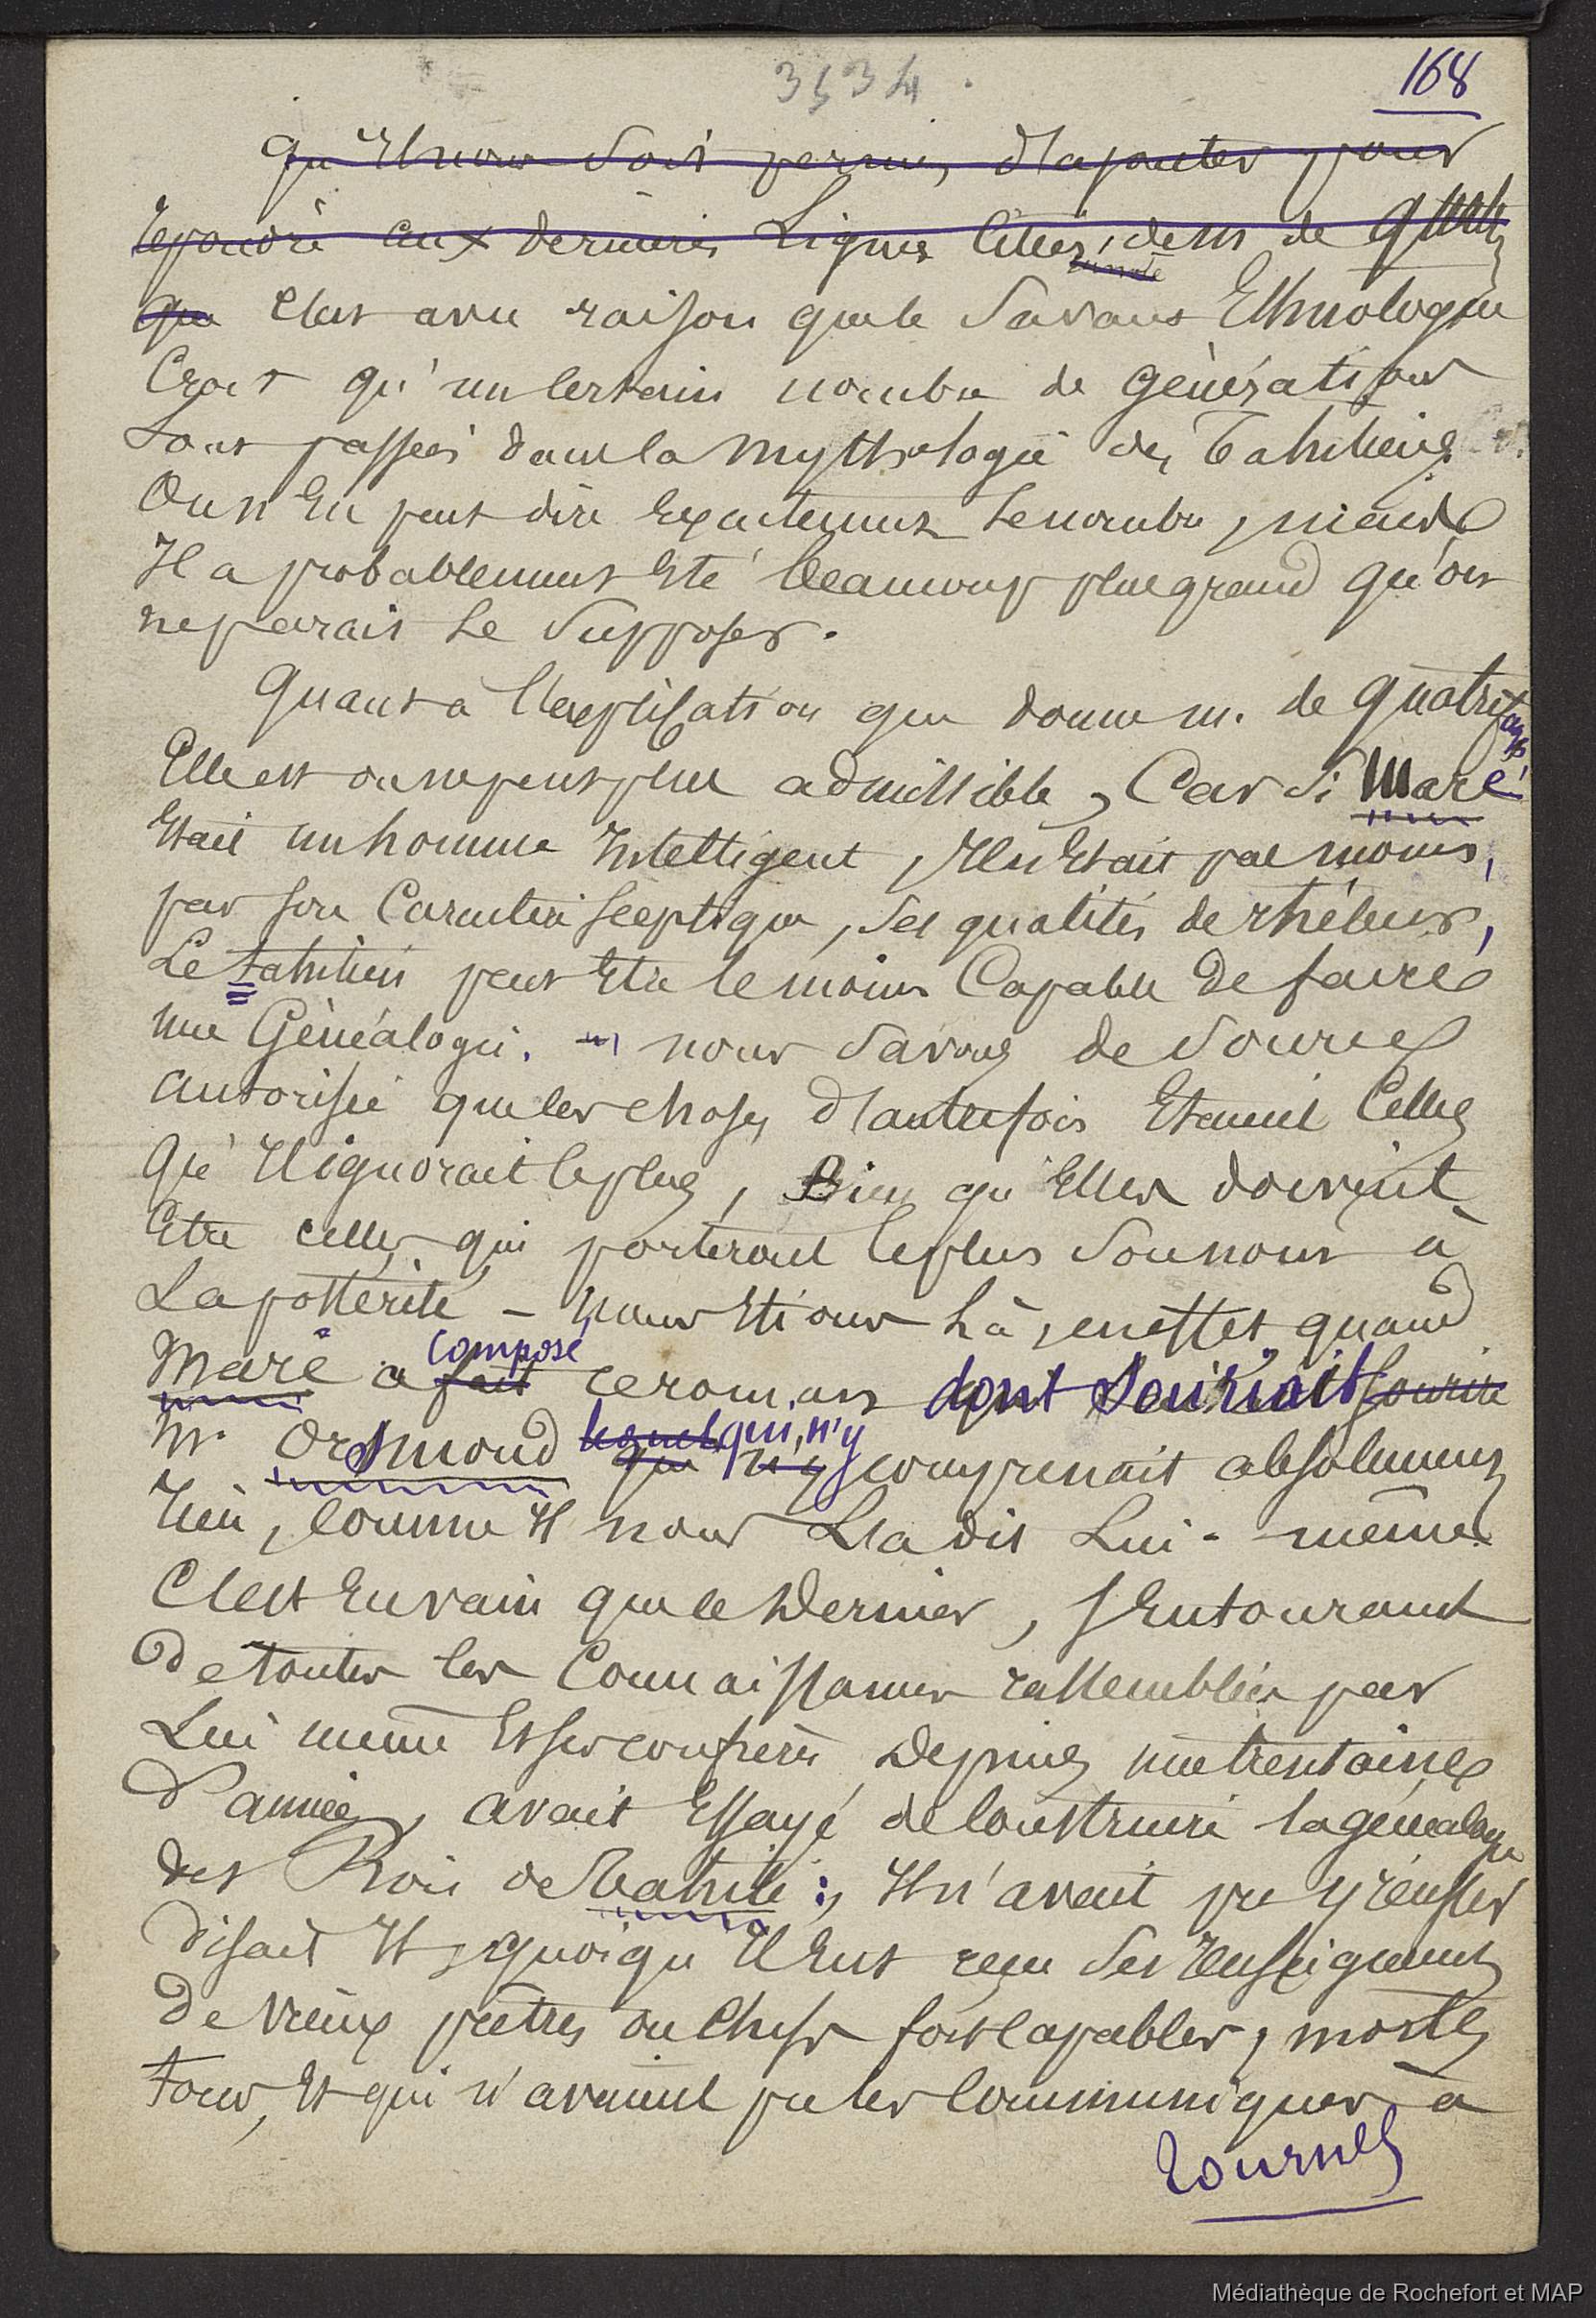 3534.
168
Qu'il nous soit permis d'ajouter pour
répondre aux dernières lignes citées, de m. de Quatref
que c'est avec raison que le savant Ethnologue
Croit qu'un certain nombre de générations
sont passées dans la mythologie des Tahitiens.
On n'en peut dire exactement le nombre, mais
Il a probablement été beaucoup plus grand qu'on
ne parait le supposer.
Quant à l'explication que donne m. de Quatrefages
Elle est on ne peut plus admissible, Car si Maré
était un homme Intelligent, Il n'était pas moins,
par son Caractère sceptique, ses qualités de rhéteur,
Le tahitien peut être le moins Capable de faire
une Généalogie. nous savons de source
autorisée que les choses d'autrefois Etaient Celles
qu'Il ignorait le plus, Bien qu'Elles doivent
Etre celles qui porteront le plus son nom à
La postérité - nous étions là, en effet, quand
composé
Maré a fait ce roman dont souriait sourire
lequel qui, n'y
Mr Orsmond qui n'y comprenait absolument
rien, comme Il nous L'a dit Lui-même.
C'est En vain que ce Dernier, s'Entourant
De toutes les Connaissances rassemblées par
Lui même Et ses confrères Depuis une trentaine
D'années, avait Essayé de Construire la généalogie
des Rois de Tahiti : Il n'avait pu y réussir
disait Il, quoiqu'Il Eut reçu des renseignements
De vieux prêtres ou Chefs fort capables, morts
tous, Et qui n'avaient pu les Communiquer à
tournez
Médiathèque de Rochefort et MAP